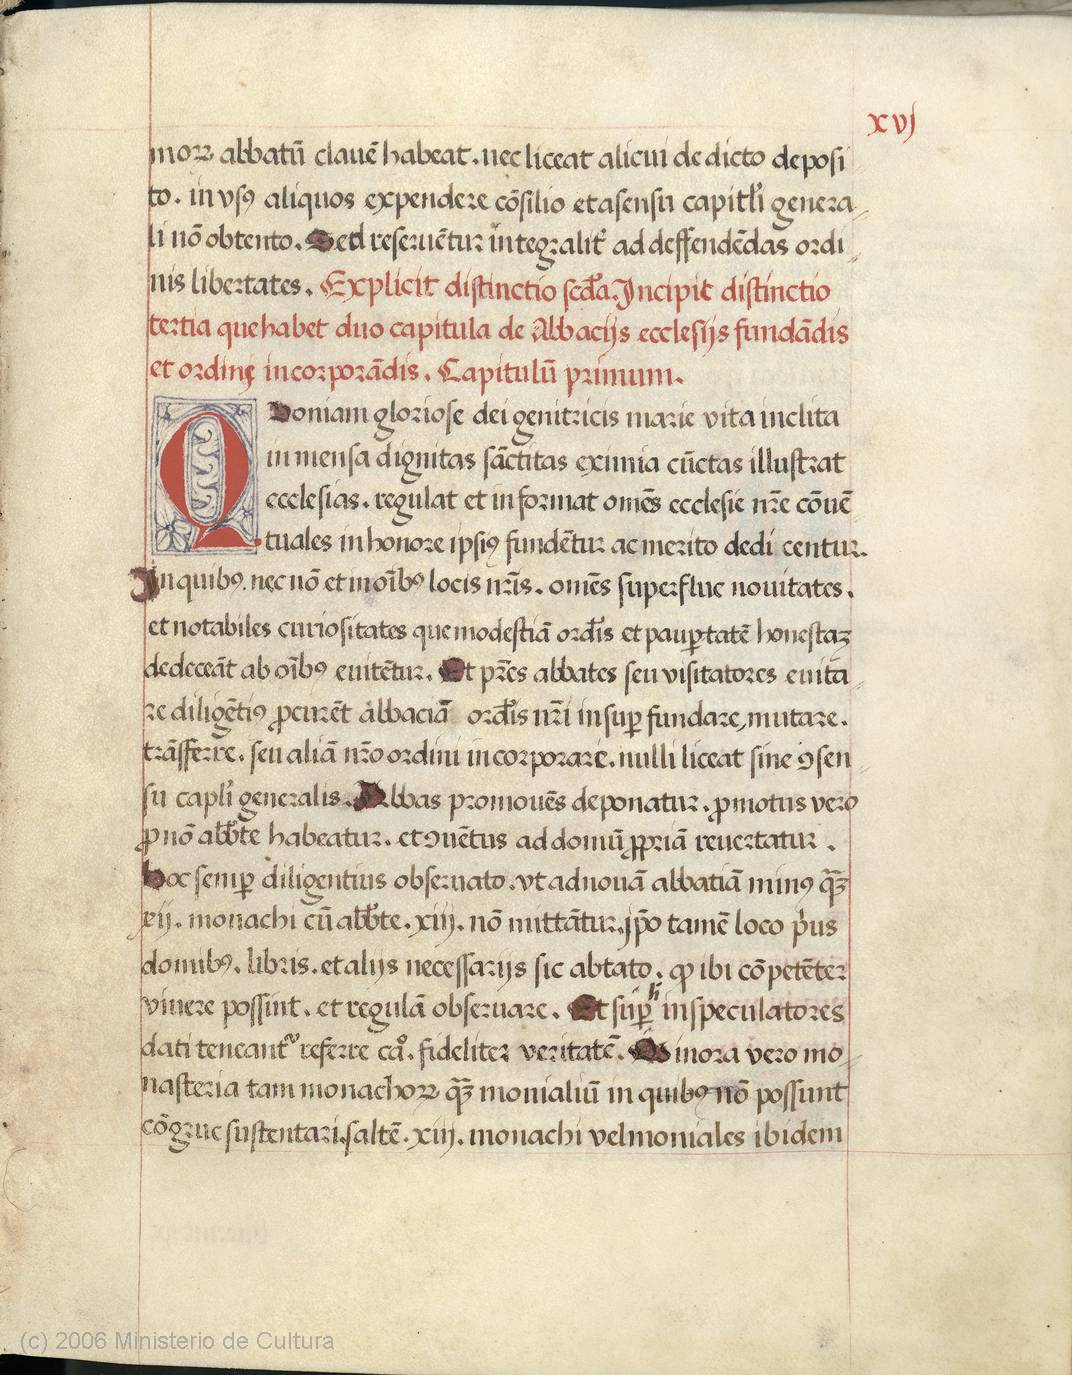 xvj
moꝝ abbatū clauē habeat. nec liceat alicui de dicto deposi
to. in vsꝰ aliquos expendere cōsilio et asensu capitl̓i genera
li nō obtento. Sed reseruētur integralit̓ ad deffendēdas ordi
nis libertates. Explicit distinctio scd̓a. Incipit distinctio
tertia que habet duo capitula de Abbacijs ecclesijs fundādis
et ordinj incorporādis. Capitulū primum.
Quoniam gloriose dei genitricis marie vita inclita
in mensa dignitas sāctitas eximia cūctas illustrat
ecclesias. regulat et informat omēs ecclesie nr̄e cōuē
tuales in honore ipsiꝰ fundētur ac merito dedi centur.
In quibꝰ. nec nō et in oīb̓ꝰ locis nr̄is. omēs superflue nouitates.
et notabiles curiositates que modestiā ord̓is et paup̱tatē honestaꝫ
dedeceāt ab oībꝰ euitētur. Et pr̄es abbates seu visitatores euita
re diligētiꝰ ꝓcurēt abbaciā ord̓is nr̄i insup̱ fundare, mutare.
trāsferre. seu aliā nr̄o ordini incorporare. nulli liceat sine ꝯsen
su capl̓i generalis. Abbas promouēs deponatur. ꝓmotus vero
ꝓ nō abb̓te habeatur. et ꝯuētus ad domū ꝓpriā reuertatur.
hoc semp̱ diligentius obseruato. vt ad nouā abbatiā minꝰ q̄ꝫ
xij. monachi cū abb̓te. xiij. nō mittātur. ip̄o tamē loco pͥus
domibꝰ. libris. et alijs necessarijs sic abtato. ꝙ ibi cōpetēter
viuere possint. et regulā obseruare. Et sup̱ h̓ inspeculatores
dati teneant᷑ referre caº. fideliter veritatē. Minora vero mo
nasteria tam monachoꝝ q̄ꝫ monialiū in quibꝰ nō possunt
cōgrue sustentari. saltē. xiij. monachi vel moniales ibidem
(c) 2006 Ministerio de Cultura